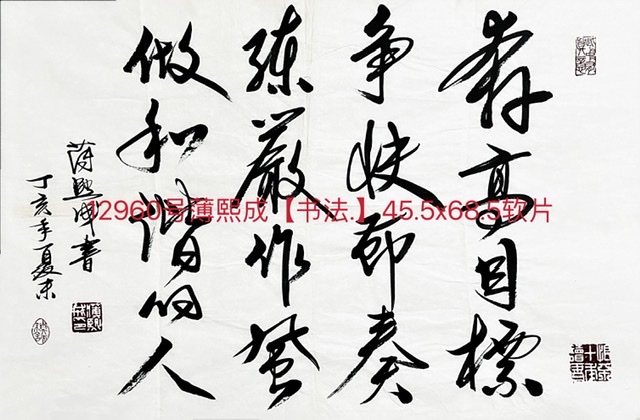 奔高目標
争快節奏
练嚴作風
做和谐的人
薄熙成書
丁亥年夏末
12960号薄熙成【书法.】45.5x68.5软片